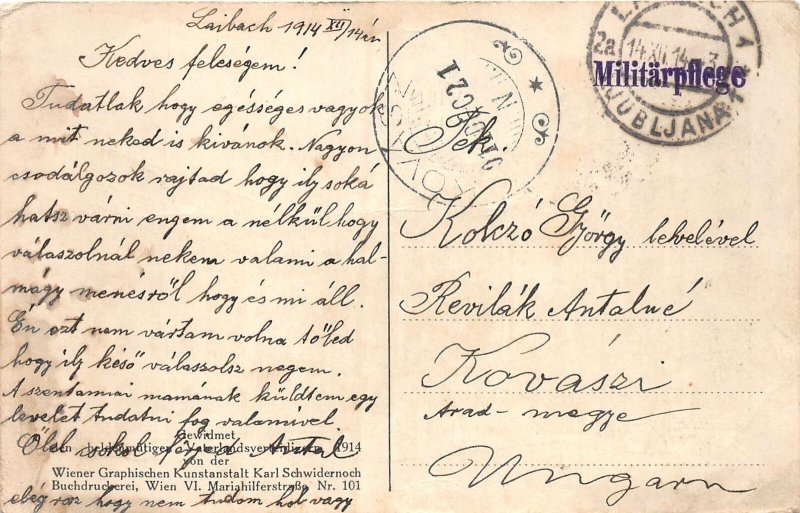 Laibach 1914 XII/14én
Kedves feleségem!
Tudatlak hogy egésséges vagyok
a mit neked is kivánok. Nagyon
csodálgozok rajtad hogy ily soká
hatsz várni engem a nélkül hogy
válaszolnál nekem valami a hal-
mágy menésről hogy és mi áll.
Én ezt nem vártam volna tőled
hogy ily késő válaszolsz negem.
A szentannai mamának küldtem egy
levelet tudatni fog valamivel.
Ölel csokol férjed Antal
elég rosz hogy nem tudom hol vagy
Gewidmet
den heldenmütigen Vaterlandsverteidigern 1914
von der
Wiener Graphischen Kunstanstalt Karl Schwidernoch
Buchdruckerei, Wien VI. Mariahilferstraße Nr. 101
KOVASZI
914 DEC 21
LAIBACH 1
2a 14 XII 14
LJUBLJANA 1
Militärpflege
Kolczó György levelével
Revilák Antalné
Kovászi
Arad-megye
Ungarn